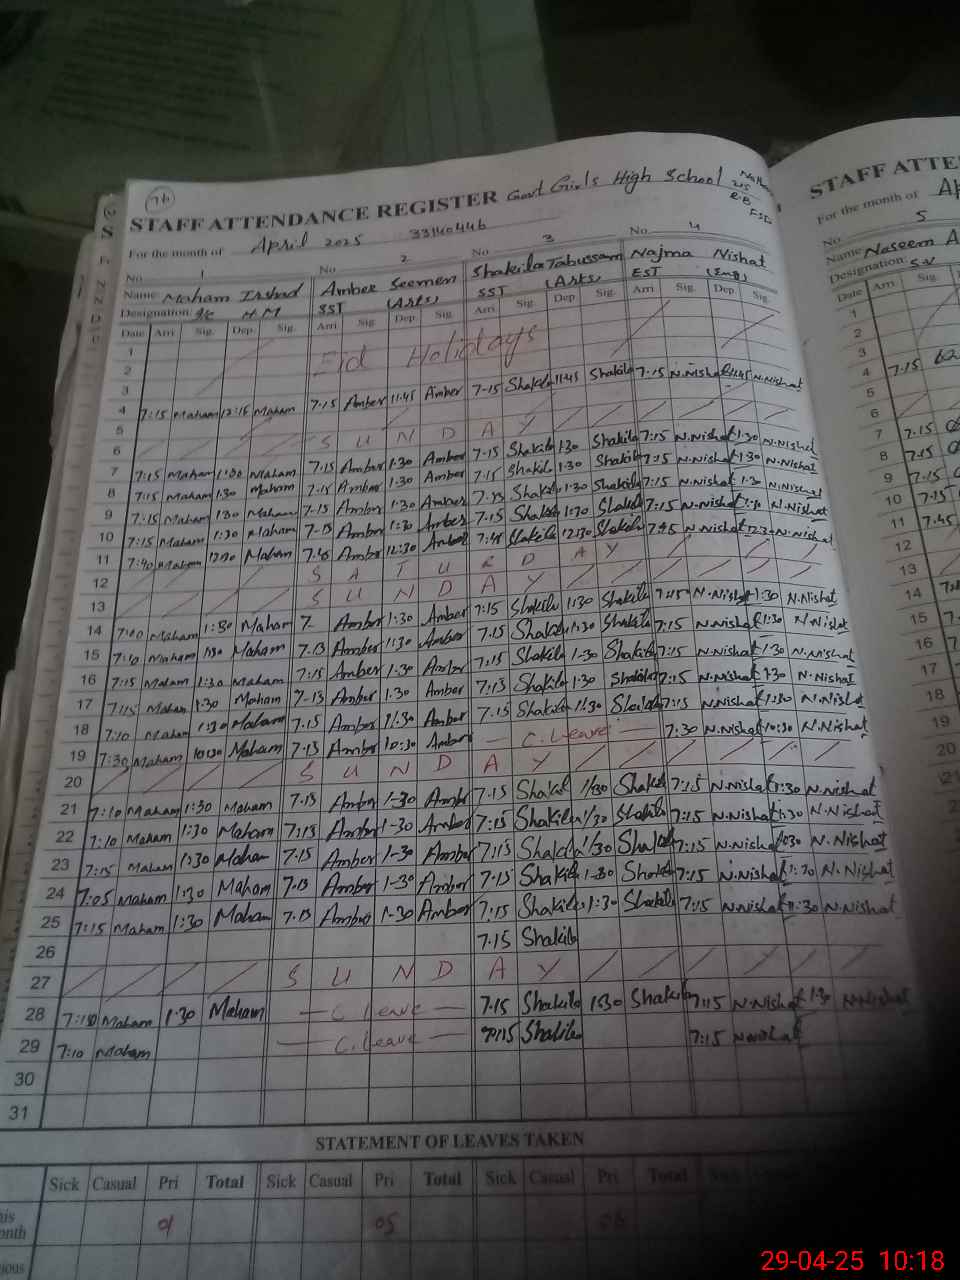 76
STAFF ATTENDANCE REGISTER Govt Girls High School
STAFF ATTE
For the month of April 2025 33140446
For the month of Ap
No. 1 No 2 No. 3 No. 4
No 5
Name Maham Irshad Amber Seemen Shakila Tabussam Najma Nishat
Name Naseem A
Designation: H.M SST (Arts) SST (Arts) EST (Eng)
Designation: S.V
Date Arri Sig. Dep. Sig. Arri Sig. Dep. Sig. Arri Sig. Dep Sig. Arri Sig. Dep. Sig.
Date Arri. Sig.
1
2 Eid Holidays
3
4 7:15 Maham 12:15 Maham 7.15 Amber 11.45 Amber 7-15 Shakila 11:45 Shakila 7.15 N.Nishat 11:45 N.Nishat
5
6 S U N D A Y
7 7:15 Maham 1:30 Maham 7.15 Amber 1.30 Amber 7-15 Shakila 1:30 Shakila 7:15 N.Nishat 1:30 N.Nishat
8 7:15 Maham 1:30 Maham 7.15 Amber 1:30 Amber 7.15 Shakila 1.30 Shakila 7:15 N.Nishat 1:30 N.Nishat
9 7:15 Maham 1:30 Maham 7-15 Amber 1:30 Amber 7.15 Shakila 1:30 Shakila 7:15 N.Nishat 1:30 N.Nishat
10 7:15 Maham 1:30 Maham 7-15 Amber 1:30 Amber 7.15 Shakila 1:30 Shakila 7:15 N.Nishat N.Nishat
11 7:40 Maham 12:30 Maham 7:45 Amber 12:30 Amber 7:45 Shakila 12:30 Shakila 7:45 N.Nishat 12:30 N.Nishat
12 S A T U R D A Y
13 S U N D A Y
14 7:00 Maham 1:30 Maham 7- Amber 1:30 Amber 7:15 Shakila 1:30 Shakila 7:15 N.Nishat 1:30 N.Nishat
15 7:10 Maham 1:30 Maham 7.15 Amber 1:30 Amber 7.15 Shakila 1:30 Shakila 7:15 N.Nishat 1:30 N.Nishat
16 7:15 Maham 1:30 Maham 7:15 Amber 1.30 Amber 7:15 Shakila 1-30 Shakila 7:15 N.Nishat 1:30 N.Nishat
17 7:15 Maham 1:30 Maham 7-15 Amber 1.30 Amber 7:15 Shakila 1:30 Shakila 7:15 N.Nishat 1:30 N.Nishat
18 7:10 Maham 1:30 Maham 7.15 Amber 11:30 Amber 7.15 Shakila 11:30 Shakila 7:15 N.Nishat 11:30 N.Nishat
19 7:30 Maham 10:30 Maham 7.15 Amber 10:30 Amber — C. Leave — 7:30 N.Nishat 10:30 N.Nishat
20 S U N D A Y
21 7:10 Maham 1:30 Maham 7.15 Amber 1-30 Amber 7.15 Shakil 1/30 Shakila 7:15 N.Nishat 1:30 N.Nishat
22 7:10 Maham 1:30 Maham 7:15 Amber 1-30 Amber 7:15 Shakila 1/30 Shakila 7:15 N.Nishat 1:30 N.Nishat
23 7:15 Maham 1:30 Maham 7.15 Amber 1-30 Amber 7:15 Shakila 1/30 Shakila 7:15 N.Nishat N.Nishat
24 7:05 Maham 1:30 Maham 7.15 Amber 1-30 Amber 7.15 Shakila 1-30 Shakila 7:15 N.Nishat N.Nishat
25 7:15 Maham 1:30 Maham 7.15 Amber 1-30 Amber 7:15 Shakila 1:30 Shakila 7:15 N.Nishat 11:30 N.Nishat
26 7.15 Shakila
27 S U N D A Y
28 Maham 1:30 Maham — C. Leave — 7.15 Shakila 1:30 Shakila 7:15 N.Nishat 1:30 N.Nishat
29 7:10 Maham — C. Leave — 7:15 Shakila 7:15 N.Nishat
30
31
1
2
3
4 7.15
5
6
7 7.15
8 7.15
9 7.15
10 7.15
11 7.45
12
13
14
15
16
17
18
19
20
STATEMENT OF LEAVES TAKEN
Sick Casual Pri Total Sick Casual Pri Total Sick Casual Pri Total
01 05 06
29-04-25 10:18